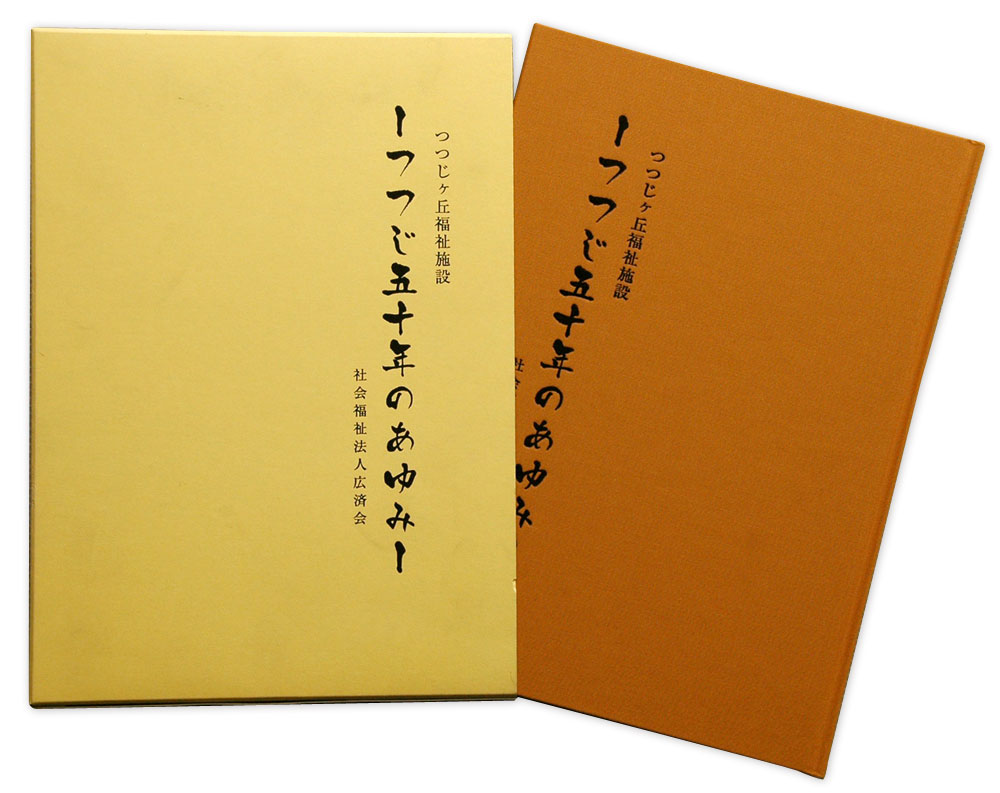 つつじヶ丘福祉施設
ーつつじ五十年のあゆみー
社会福祉法人広済会
つつじヶ丘福祉施設
ーつつじ五十年のあゆみ
社会